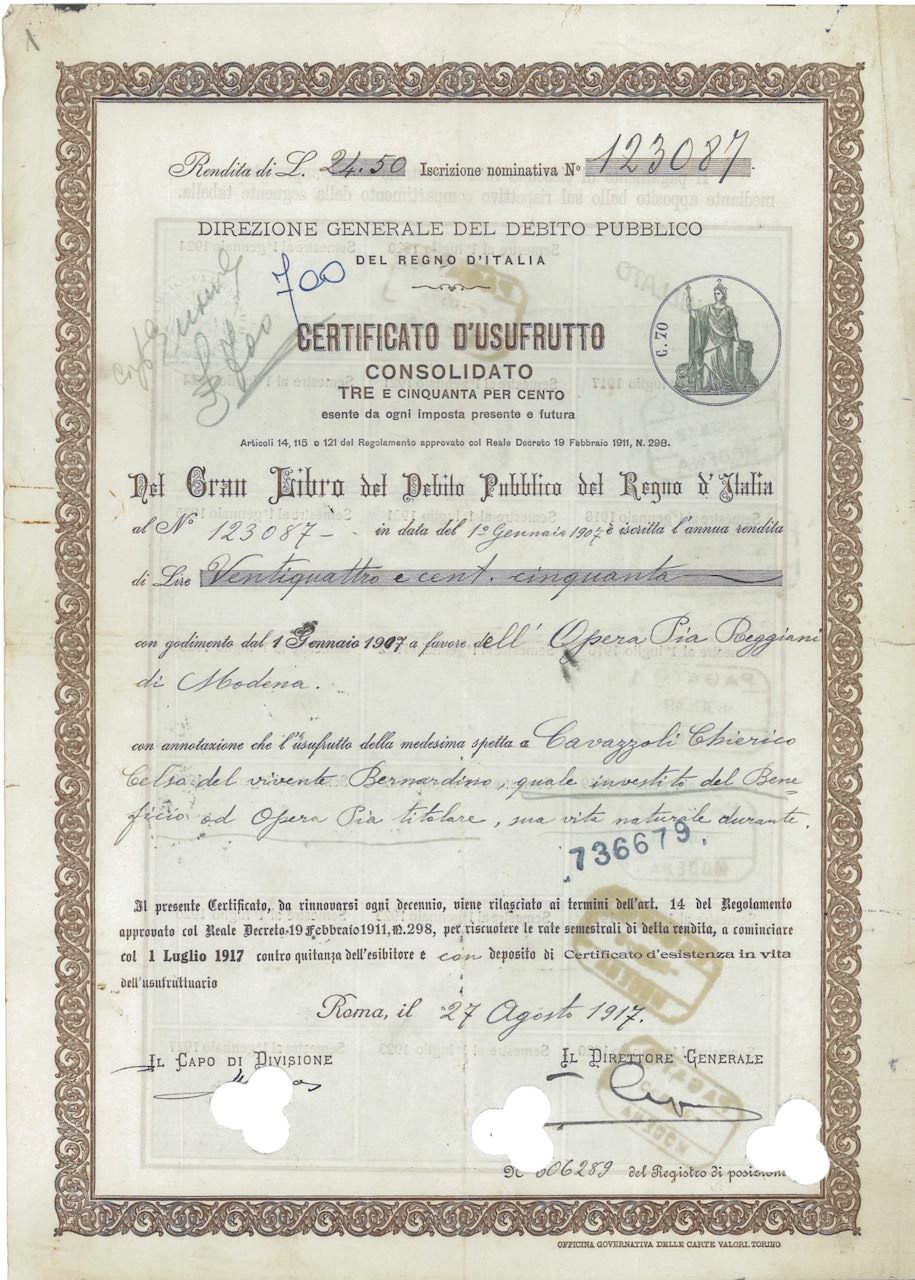 Rendita di L. 24.50 Iscrizione nominativa Nº 123087
DIREZIONE GENERALE DEL DEBITO PUBBLICO
DEL REGNO D'ITALIA
700
C. 70
CERTIFICATO D'USUFRUTTO
CONSOLIDATO
TRE E CINQUANTA PER CENTO
esente da ogni imposta presente e futura
Articoli 14, 115 e 121 del Regolamento approvato col Reale Decreto 19 Febbraio 1911, N. 298.
Nel Gran Libro del Debito Pubblico del Regno d'Italia
al Nº 123087 - in data del 1º Gennaio 1907 è iscritta l'annua rendita
di Lire Ventiquattro e cent. cinquanta
con godimento dal 1 Gennaio 1907 a favore dell' Opera Pia Reggiani
di Modena.
con annotazione che l'usufrutto della medesima spetta a Cavazzoli Chierico
Celso del vivente Bernardino, quale investito del Bene=
ficio od Opera Pia titolare, sua vita naturale durante.
736679.
Il presente Certificato, da rinnovarsi ogni decennio, viene rilasciato ai termini dell'art. 14 del Regolamento
approvato col Reale Decreto 19 Febbraio 1911, N. 298, per riscuotere le rate semestrali di detta rendita, a cominciare
col 1 Luglio 1917 contro quitanza dell'esibitore e con deposito di Certificato d'esistenza in vita
dell'usufruttuario
Roma, il 27 Agosto 1917.
IL CAPO DI DIVISIONE
IL DIRETTORE GENERALE
Nº 506289 del Registro di posizione
OFFICINA GOVERNATIVA DELLE CARTE VALORI. TORINO